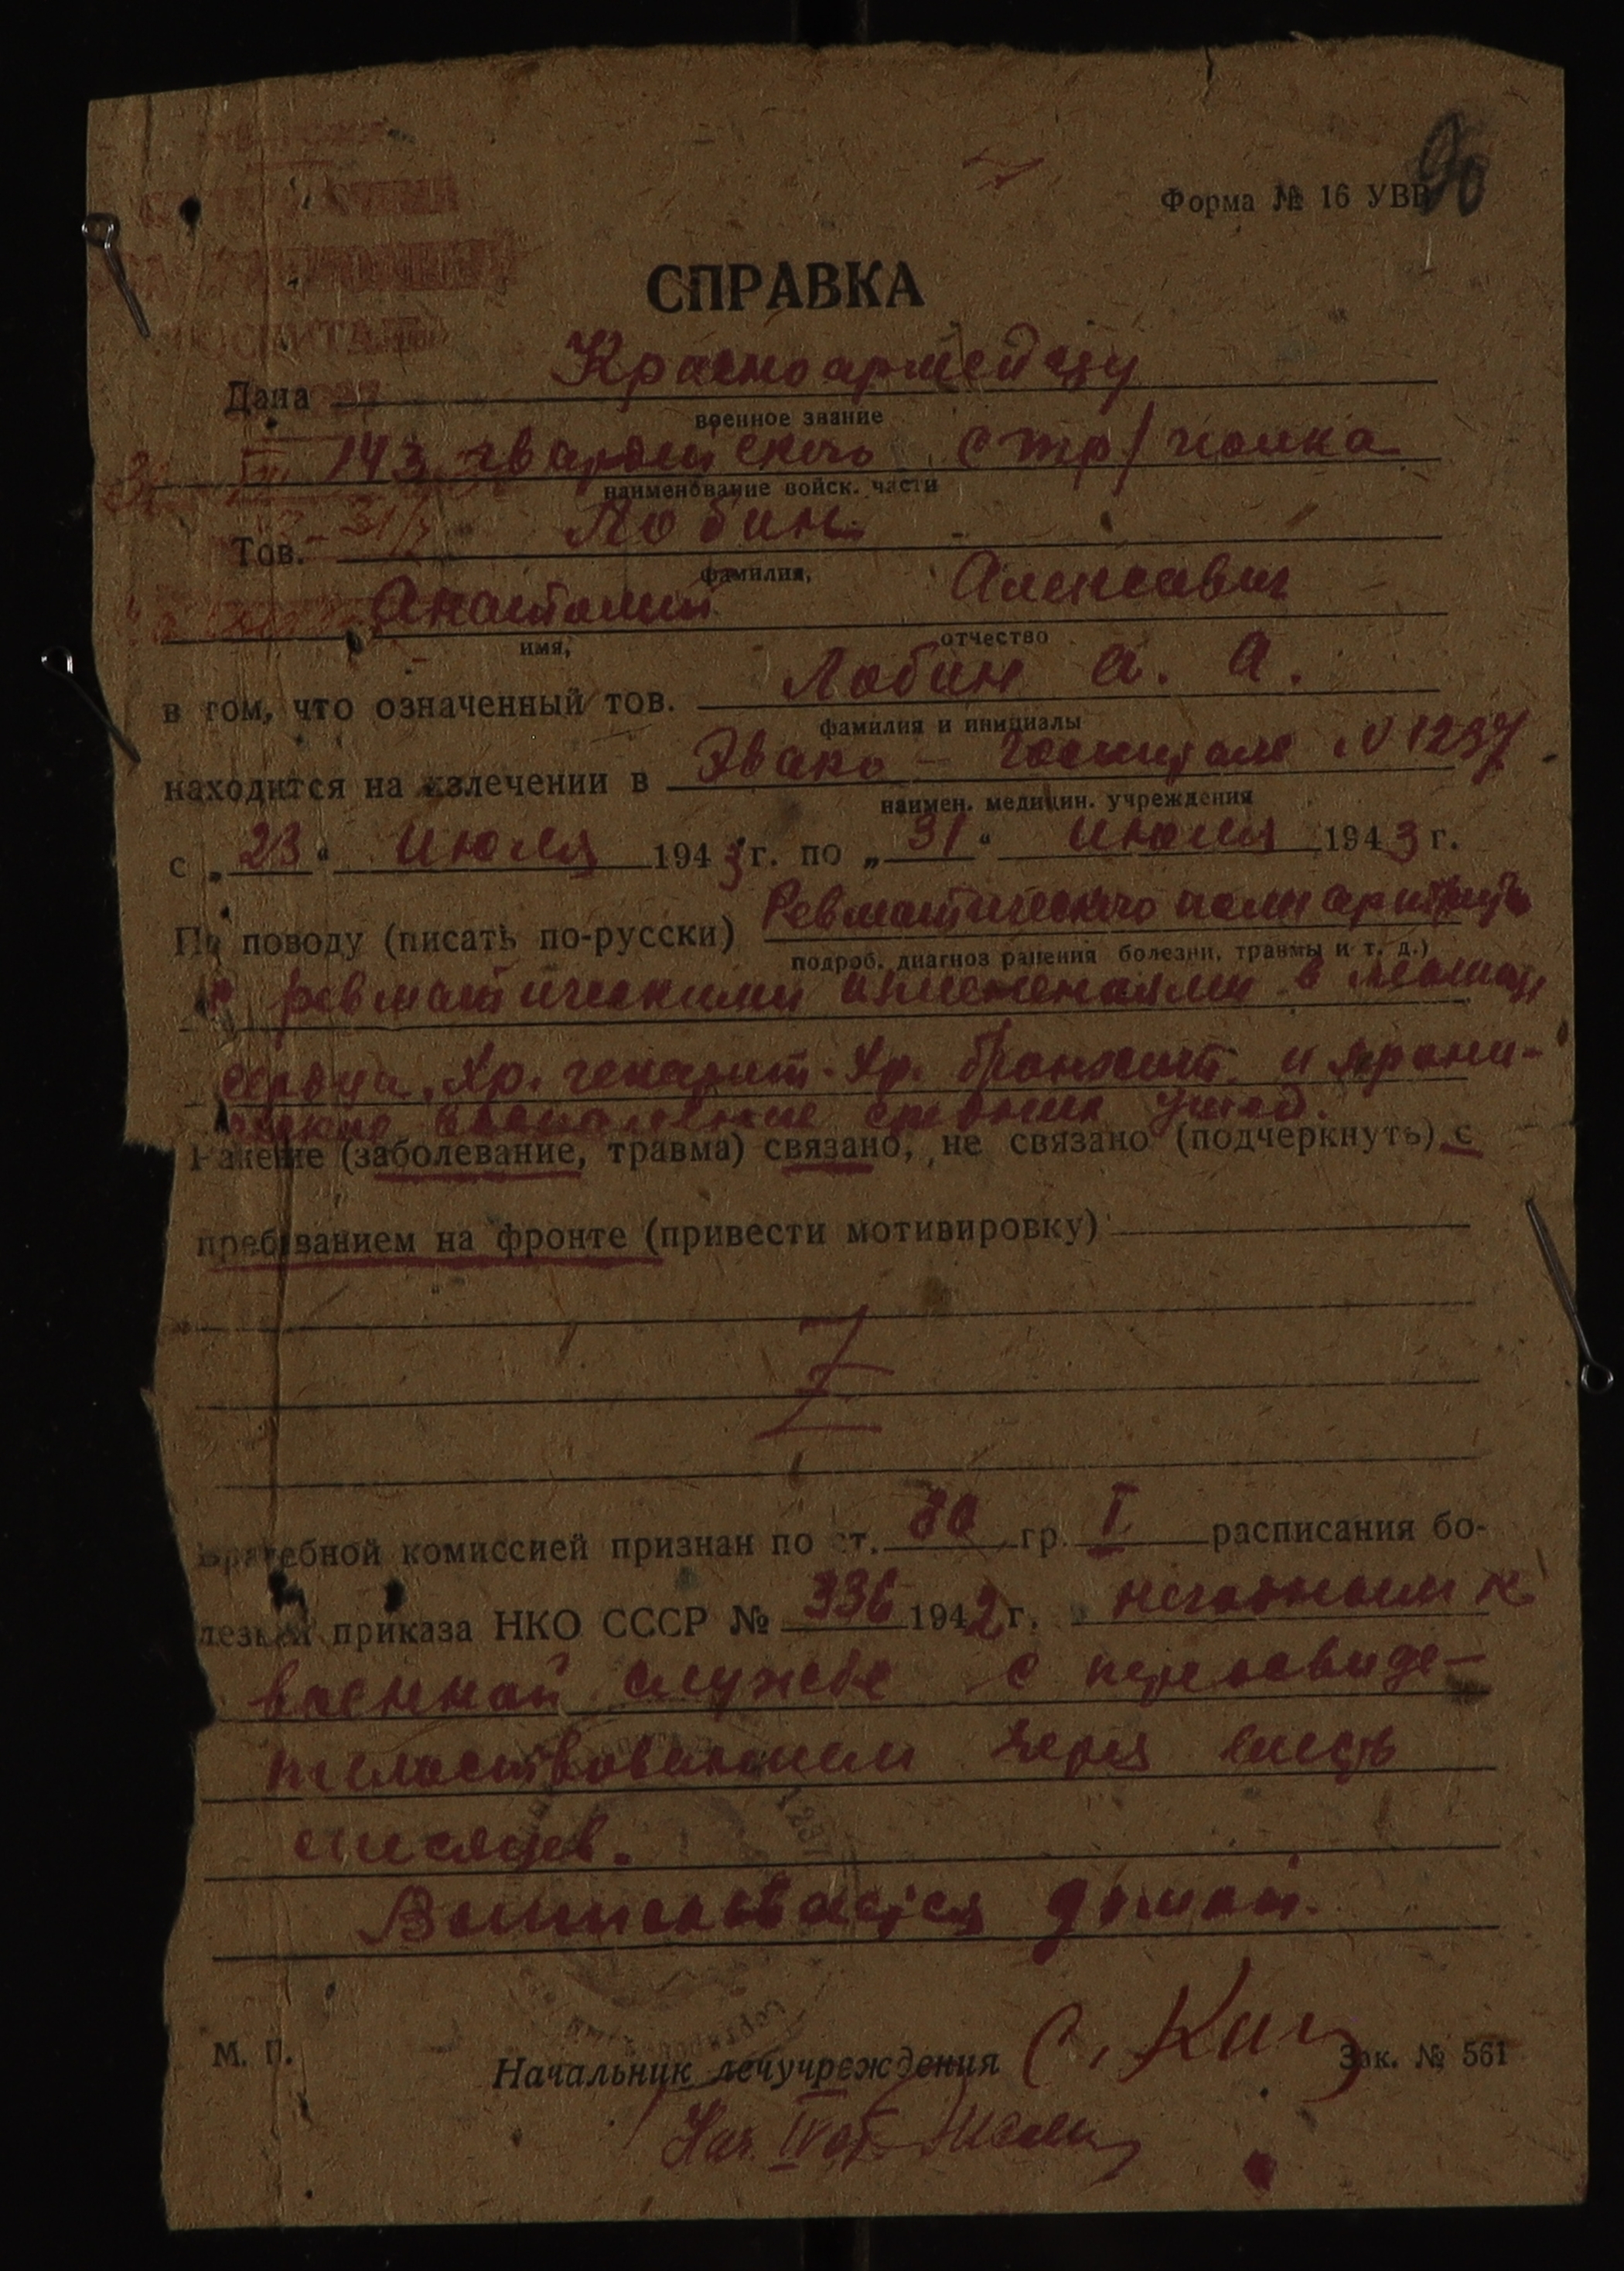 90
Форма № 16 УВВ
ГОСПИТАЛЬ
СПРАВКА
Дана Красноармейцу
военное звание
143 гвардейского стр/полка
наименование войск. части
31/7
Тов. Лобин
фамилия,
Анатолий Алексевич
имя, отчество
в том, что означенный тов. Лобин А. А.
фамилия и инициалы
находится на излечении в Эвако – госпитале N 1237.
наимен. медицин. учреждения
с „23“ июля 1943 г. по „31“ июля 1943 г.
По поводу (писать по-русски) Ревматического полиартрита
подроб. диагноз ранения болезни, травмы и т. д.)
с ревматическими изменениями в мышце
сердца, Хр. гепатит. Хр. бронхит и хрони-
ческое воспаление средних ушей.
Ранение (заболевание, травма) связано, не связано (подчеркнуть) с
пребыванием на фронте (привести мотивировку)
Z
Врачебной комиссией признан по ст. 80 гр. I расписания бо-
лезней приказа НКО СССР № 336 1942 г. негодным к
военной службе с переосвиде-
тельствованием через шесть
месяцев.
Выписывается домой.
1237
М. П.
Начальник лечучреждения
Зак. № 561
Нач. IV от.